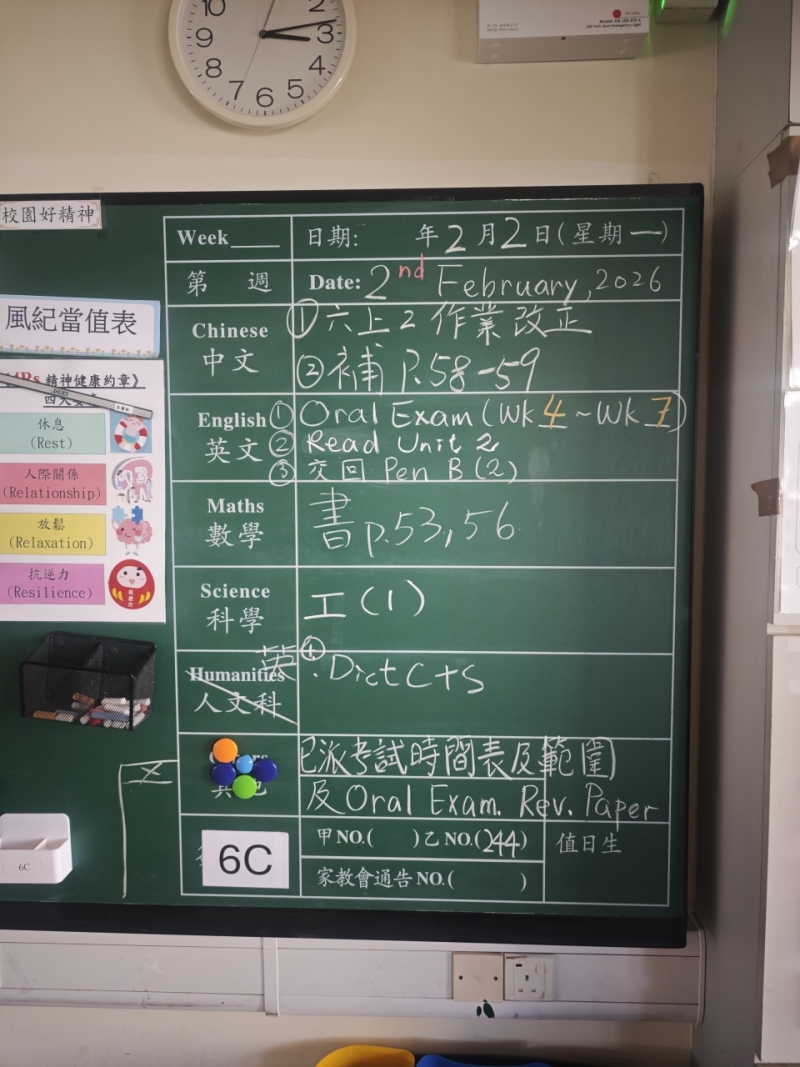 10
2
9
3
8
4
7
6
5
校園好精神
風紀當值表
精神健康約章》
休息
(Rest)
人際關係
(Relationship)
放鬆
(Relaxation)
抗逆力
(Resilience)
6C
Week____ 日期: 年2月2日(星期一)
第 週 Date: 2nd February, 2026
Chinese 中文
① 六上2 作業改正
② 補 P.58-59
English 英文
① Oral Exam (Wk 4 ~ Wk 7)
② Read Unit 2
③ 交回 Pen B (2)
Maths 數學
書 p.53, 56
Science 科學
工(1)
Humanities 人文科
英 ④ . Dict C+S
已派考試時間表及範圍
及 Oral Exam. Rev. Paper
6C
甲NO.( ) 乙NO.(244) 值日生
家教會通告NO.( )